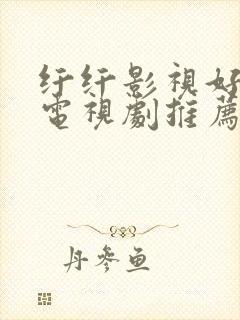 纤纤影視好
電視劇推薦
丹參鱼